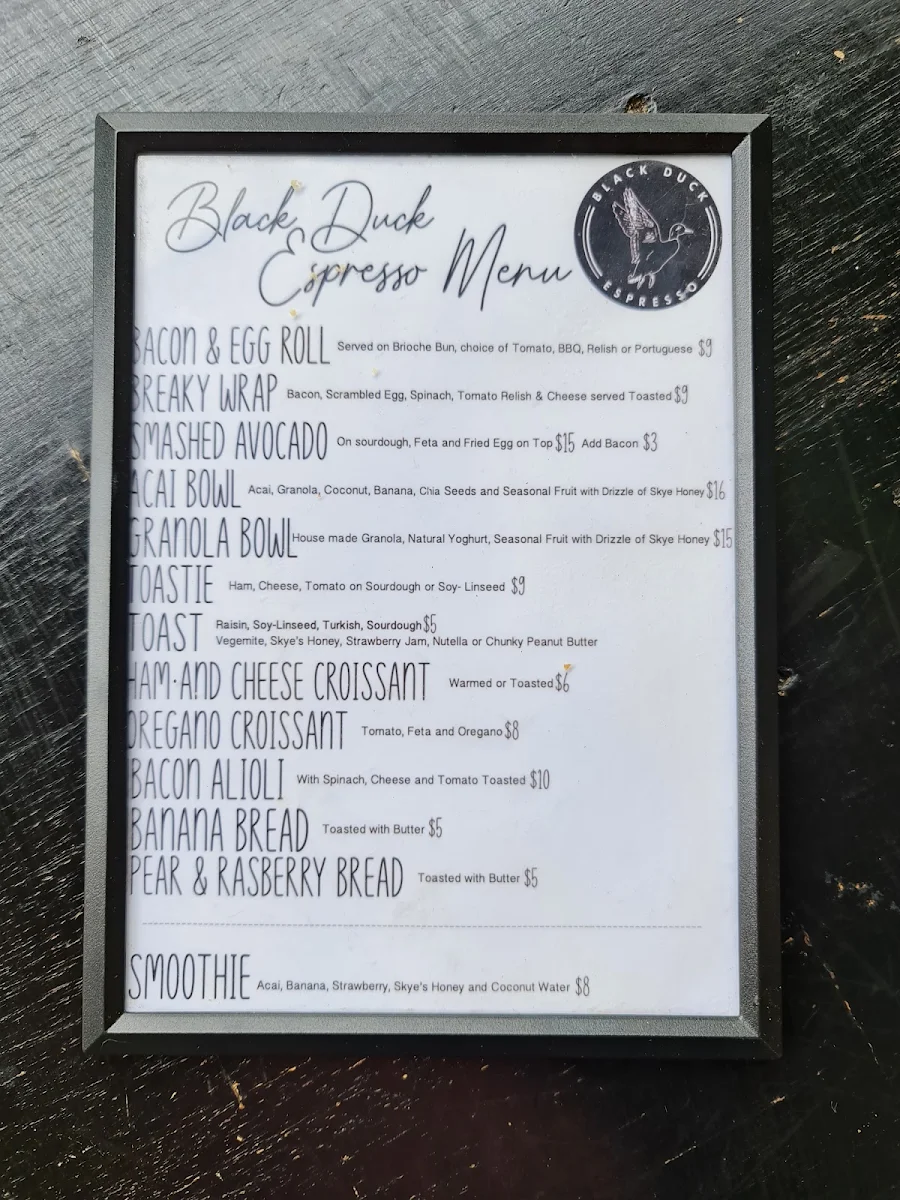 Black Duck
Espresso Menu
BLACK DUCK
ESPRESSO
BACON & EGG ROLL Served on Brioche Bun, choice of Tomato, BBQ, Relish or Portuguese $9
BREAKY WRAP Bacon, Scrambled Egg, Spinach, Tomato Relish & Cheese served Toasted $9
SMASHED AVOCADO On sourdough, Feta and Fried Egg on Top $15 Add Bacon $3
ACAI BOWL Acai, Granola, Coconut, Banana, Chia Seeds and Seasonal Fruit with Drizzle of Skye Honey $16
GRANOLA BOWL House made Granola, Natural Yoghurt, Seasonal Fruit with Drizzle of Skye Honey $15
TOASTIE Ham, Cheese, Tomato on Sourdough or Soy- Linseed $9
TOAST Raisin, Soy-Linseed, Turkish, Sourdough $5
Vegemite, Skye's Honey, Strawberry Jam, Nutella or Chunky Peanut Butter
HAM AND CHEESE CROISSANT Warmed or Toasted $6
OREGANO CROISSANT Tomato, Feta and Oregano $8
BACON ALIOLI With Spinach, Cheese and Tomato Toasted $10
BANANA BREAD Toasted with Butter $5
PEAR & RASBERRY BREAD Toasted with Butter $5
SMOOTHIE Acai, Banana, Strawberry, Skye's Honey and Coconut Water $8